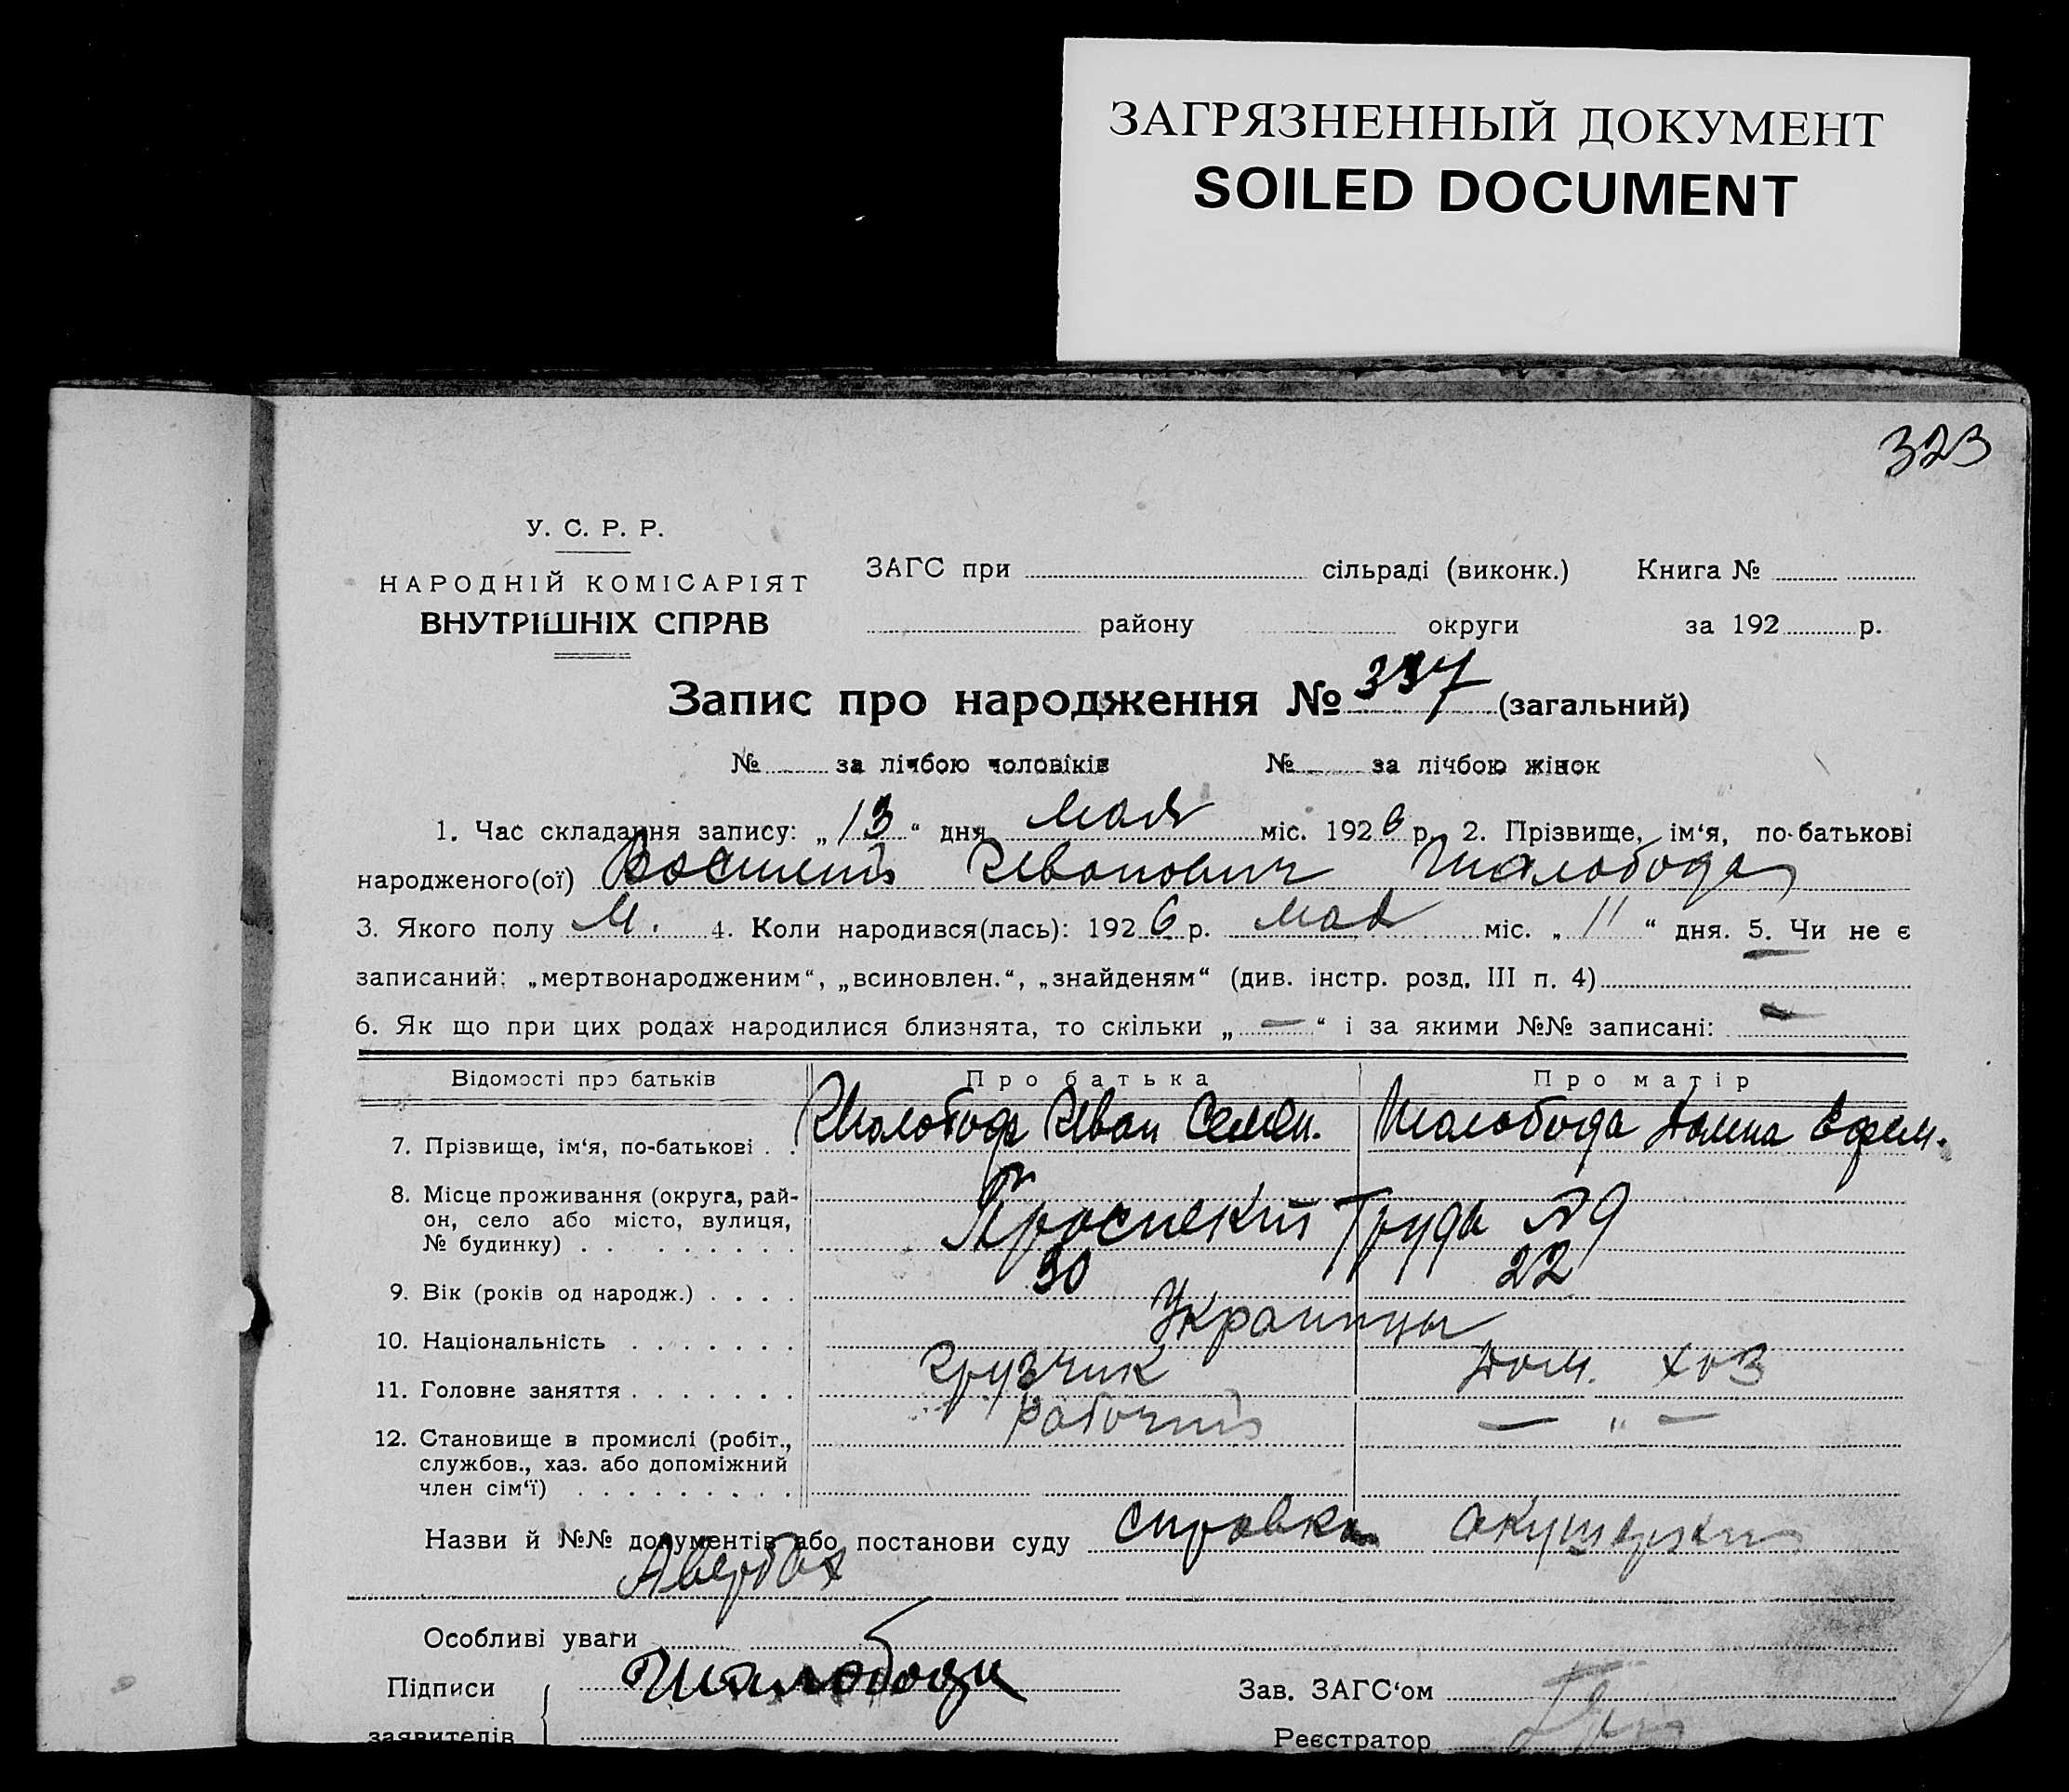 ЗАГРЯЗНЕННЫЙ ДОКУМЕНТ
SOILED DOCUMENT
323
У. С. Р. Р.
НАРОДНІЙ КОМІСАРІЯТ
ВНУТРІШНІХ СПРАВ
ЗАГС при сільраді (виконк.) Книга №
району округи за 192 р.
Запис про народження № 337 (загальний)
№ за лічбою чоловіків № за лічбою жінок
1. Час складання запису: „ 13 “ дня мая міс. 1926 р. 2. Прізвище, ім‘я, по-батькові
народженого(ої) Василий Иванович Шалобода
3. Якого полу М. 4. Коли народився(лась): 1926 р. мая міс. „ 11 “ дня. 5. Чи не є
записаний: „мертвонародженим“, „всиновлен.“, „знайденям“ (див. інстр. розд. III п. 4)
6. Як що при цих родах народилися близнята, то скільки „ — “ і за якими №№ записані: —
Відомості про батьків Про батька Про матір
7. Прізвище, ім‘я, по-батькові . . Шалобода Иван Семен. Шалобода Домна Ефим.
8. Місце проживання (округа, рай-
он, село або місто, вулиця,
№ будинку) . . . . . . . . . Проспект Труда №9
9. Вік (років од народж.) . . . . 30 22
10. Національність . . . . . . . Украинцы
11. Головне заняття . . . . . . . Грузчик Дом. хоз
12. Становище в промислі (робіт.,
службов., хаз. або допоміжний
член сім‘ї) . . . . . . . . . рабочий — „ —
Назви й №№ документів або постанови суду справка акушерки
Авербах
Особливі уваги
Підписи Шалобода Зав. ЗАГС‘ом
заявителів Реєстратор